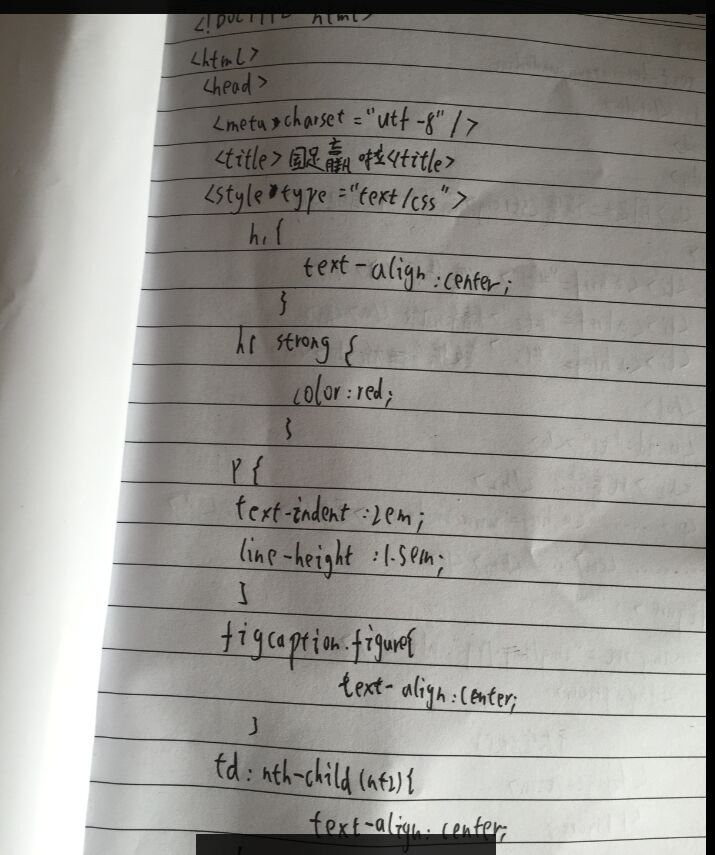 <!DOCTYPE html>
<html>
<head>
<meta charset="utf-8"/>
<title>国足赢啦</title>
<style type="text/css">
h1{
text-align:center;
}
h1 strong{
color:red;
}
P{
text-indent:2em;
line-height:1.5em;
}
figcaption.figure{
text-align:center;
}
td:nth-child(n+2){
text-align:center;